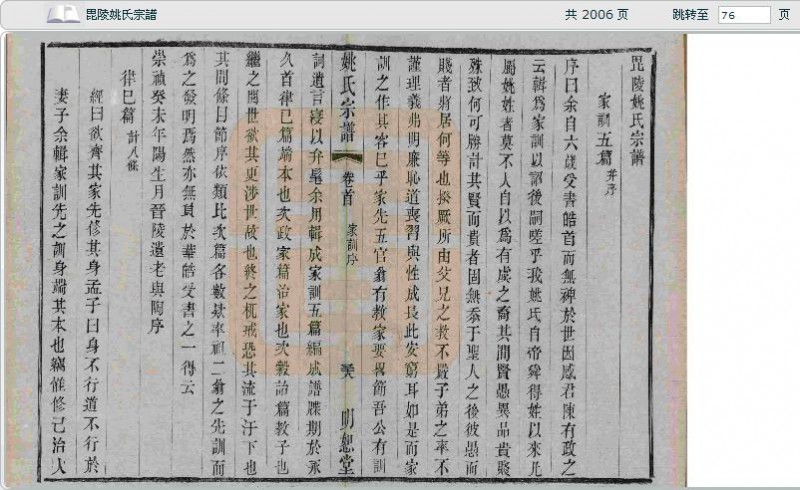 毘陵姚氏宗譜
共 2006 页
跳转至 76 页
毘陵姚氏宗譜
家訓五篇 并序
序曰余自六歲受書皓首而無裨於世因感君陳有政之
云輯為家訓以詔後嗣嗟乎我姚氏自帝舜得姓以來凡
屬姚姓者莫不人自以為有虞之裔其間賢愚異品貴賤
殊致何可勝計其賢而貴者固無忝于聖人之後彼愚而
賤者將居何等也揆厥所由父兄之教不嚴子弟之率不
謹理義弗明廉恥道喪習與性成長此安窮耳如是而家
訓之作其容已乎家先五官翁有教家要畧節吾公有訓
詞遺言寖以弁髦余用輯成家訓五篇編成譜牒期於永
久首律己篇端本也次政家篇治家也次教詒篇教子也
繼之閱世欲其更涉世故也終之杌戒恐其流于汙下也
其間條目節序依類比次篇各數條率祖二翁之先訓而
為之發明焉然亦無負於華皓受書之一得云
崇禎癸未年陽生月晉陵遺老與陶序
律巳篇 計八條
經曰欲齊其家先修其身孟子曰身不行道不行於
妻子余輯家訓先之訓身端其本也竊惟修己治人
姚氏宗譜
卷首
家訓序
明恕堂